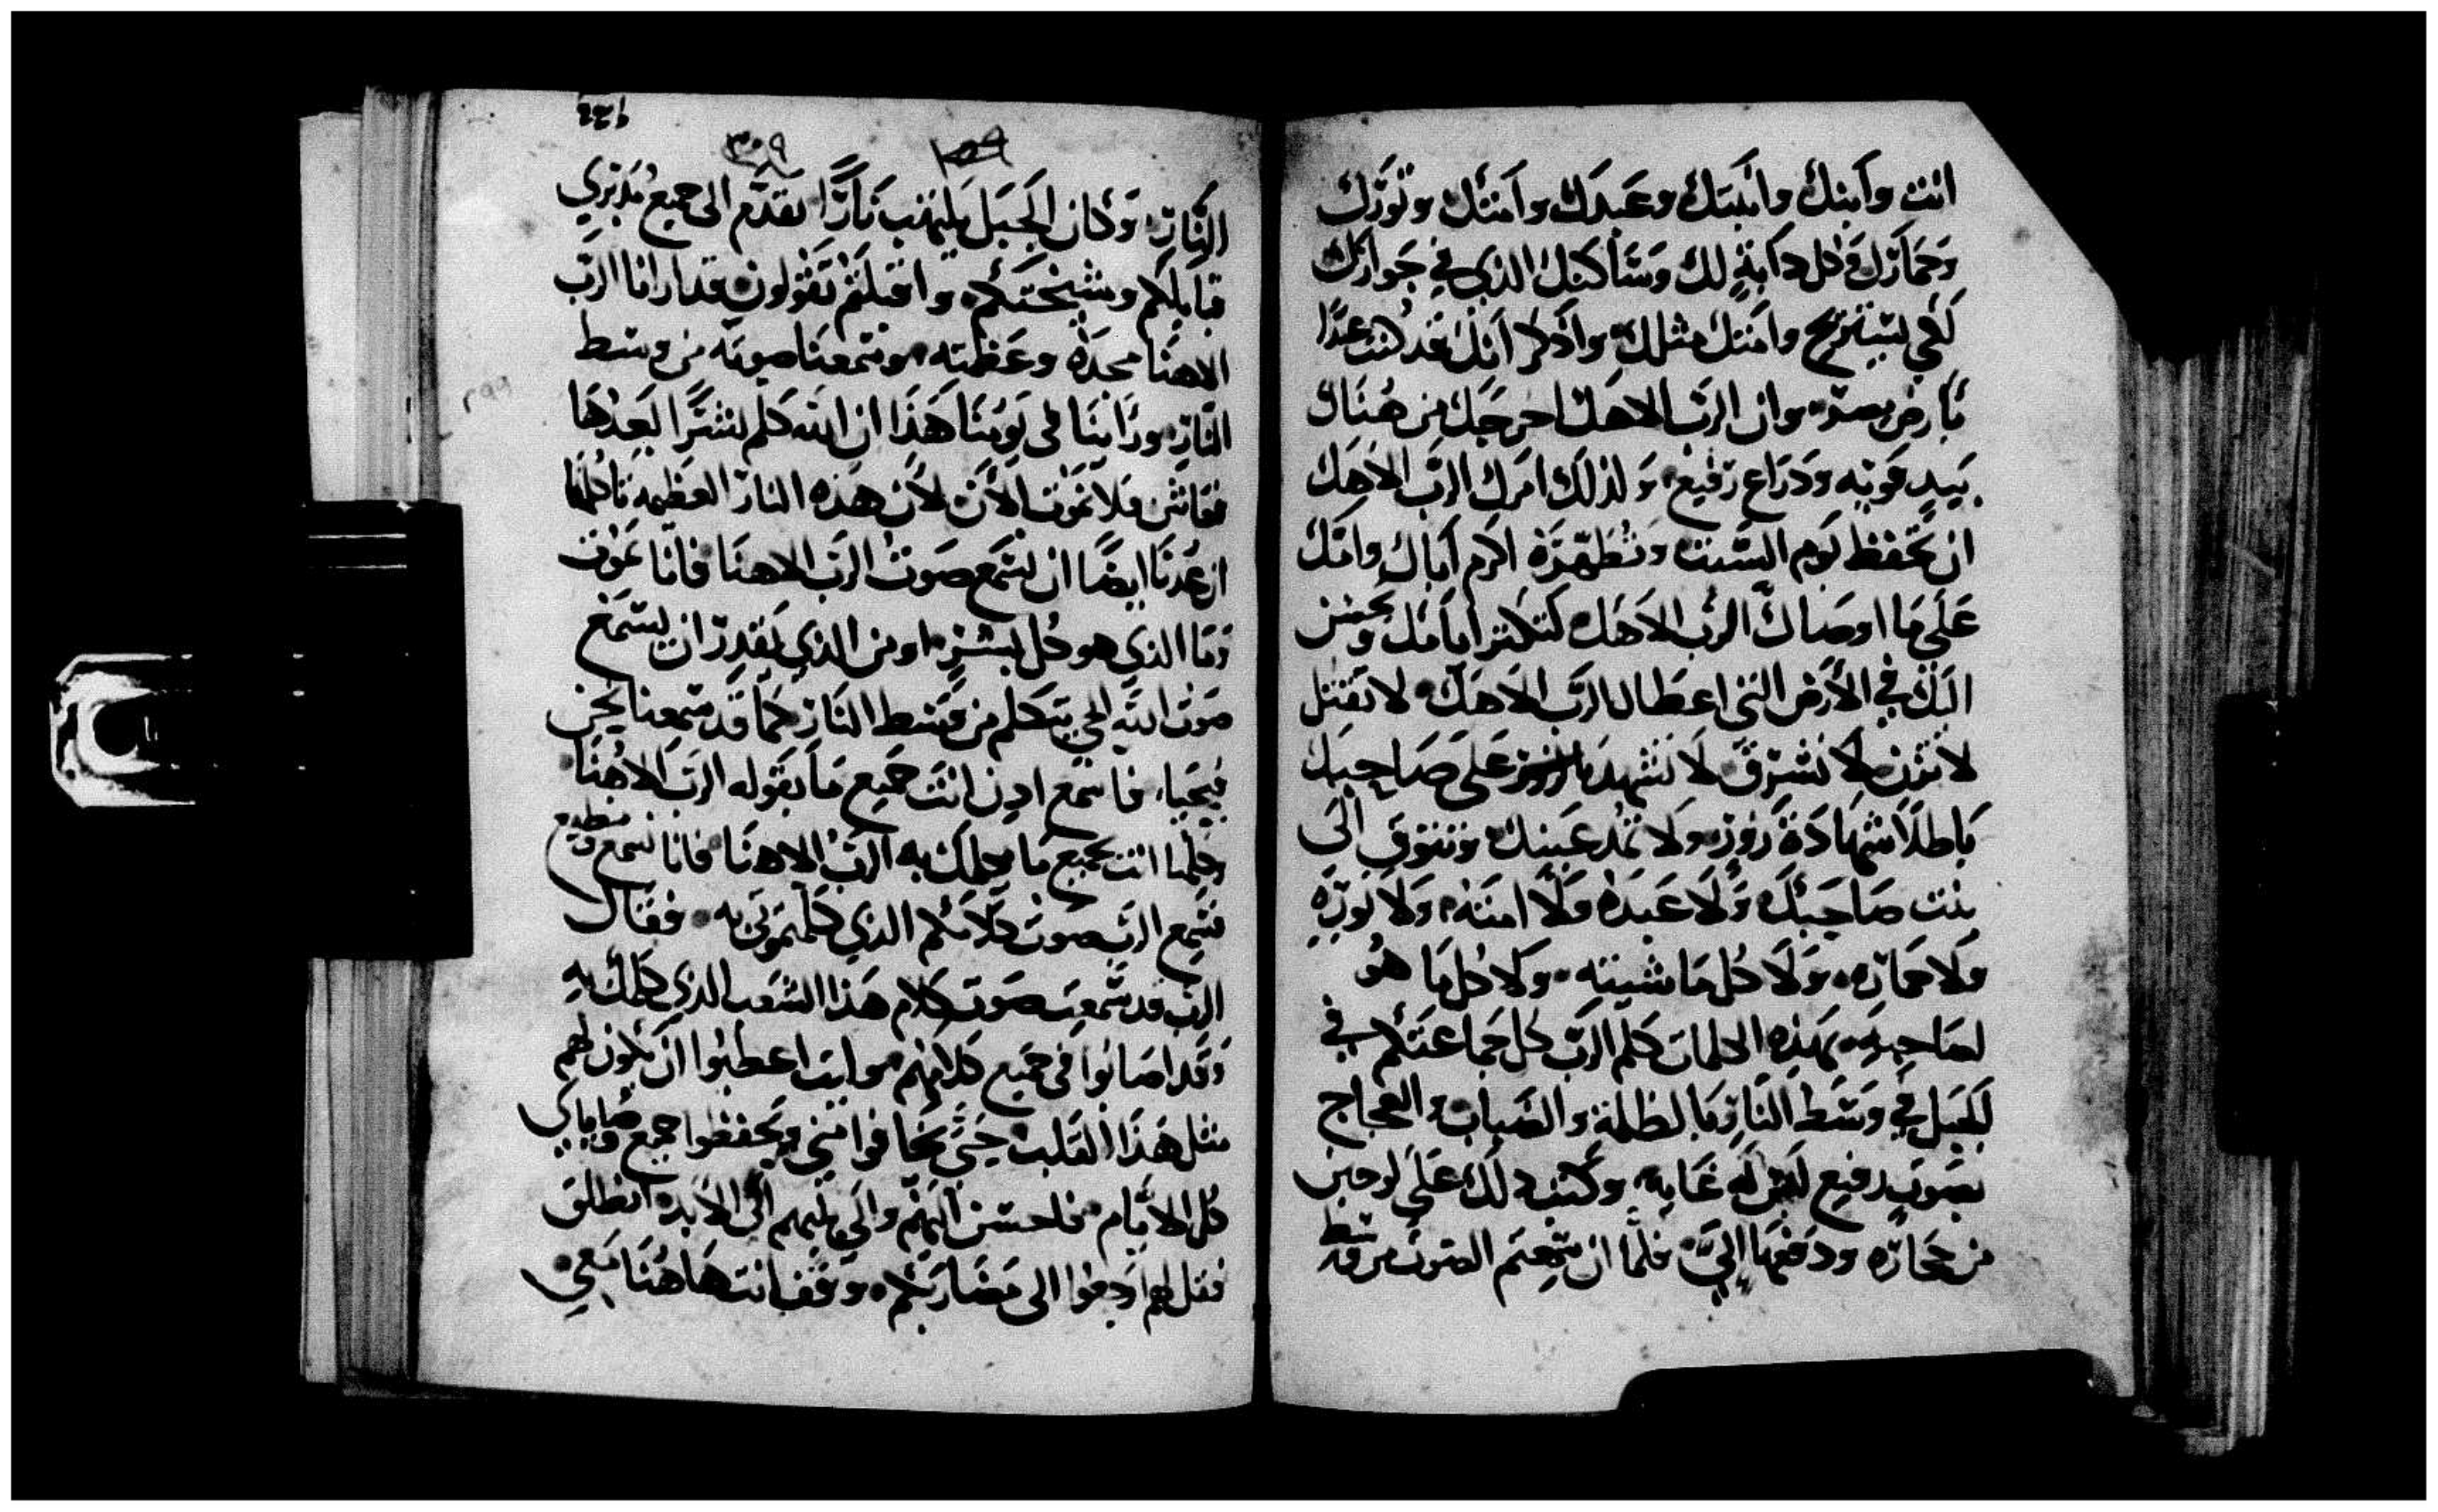 انت وابنك وابنتك وعبدك وامتك وثورك
وحمارك وكل دابة لك وساكنك الذي في جوارك
لكي يستريح وامتك مثلك واذكر انك قد كنت عبدا
بارض مصر وان الرب الاهك اخرجك من هناك
بيد قويه ودراع رفيع ولذلك امرك الرب الاهك
ان تحفظ يوم السبت وتطهره اكرم اباك وامك
على ما اوصاك الرب الاهك لتكثر ايامك وتحسن
اليك في الارض التي اعطاك الرب الاهك لا تقتل
لا تزن لا تسرق لا تشهد على صاحبك
باطلا شهادة زور ولا تمد عينك وتتوق الى
بنت صاحبك ولا عبده ولا امته ولا ثوره
ولا حماره ولا كل ماشيته ولا كل ما هو
لصاحبك بهذه الكلمات كلم الرب كل جماعتكم في
الجبل في وسط النار بالظلمة والضباب والعجاج
بصوت رفيع ليس له غايه وكتب ذلك على لوحين
من حجاره ودفعها الي فلما ان سمعتم الصوت من وسط
١٥٩
٣٠٩
النار وكان الجبل يلتهب نارا تقدم الى جميع مدبري
قبايلكم ومشيختكم واقبلتم تقولون قد ارانا الرب
الاهنا مجده وعظمته وسمعنا صوته من وسط
النار وراينا في يومنا هذا ان الله كلم بشرا
فعاش فلا نموت الان لان هذه النار العظيمه تاكلنا
ان عدنا ايضا ان نسمع صوت الرب الاهنا فانا نموت
وما الذي هو كل بشر او من الذي يقدر ان يسمع
صوت الله الحي يتكلم من وسط النار كما قد سمعنا نحن
فيحيا فاسمع ادن انت جميع ما يقوله الرب الاهنا
وكلمنا انت بجميع ما يكلمك به الرب الاهنا فانا نسمع ونطيع
فسمع الرب صوت كلامكم الذي كلمتموني به فقال
الرب قد سمعت صوت كلام هذا الشعب الذي كلمك به
وقد اصابوا في جميع كلامهم وايت اعطيوا ان يكون لهم
مثل هذا القلب حتى يخافوا مني ويحفظوا جميع وصاياي
كل الايام فاحسن اليهم والى بنيهم الى الابد انطلق
فقل لهم ارجعوا الى مضاربكم وقف انت هاهنا معي
٢٩٩